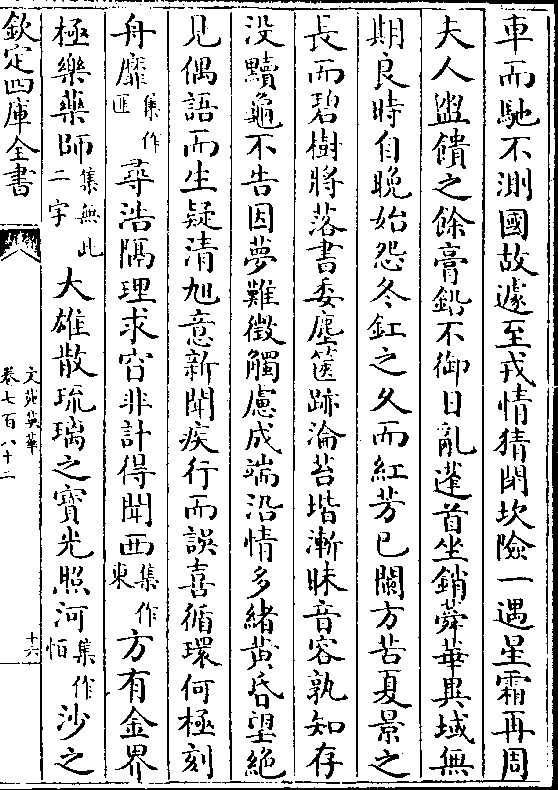 車而馳不測國故遽至戎情猜閉坎險一遇星霜再周
夫人盥饋之餘膏鉛不御日亂蓬首坐銷蕣華異域無
期良時自晚始怨冬釭之久而紅芳已闌方苦夏景之
長而碧樹將落書委塵篋跡淪苔堦漸昧音容孰知存
没黷龜不告因夢難徵觸慮成端沿情多緒黄昏望絶
見偶語而生疑清旭意新聞疾行而誤喜循環何極刻
舟靡集作匪尋浩隅理求容非計得聞西集作東方有金界
極樂藥師集無此二字大雄散琉璃之寶光照河集作怕沙之
欽定四庫全書
文苑英華
卷七百八十二
十六